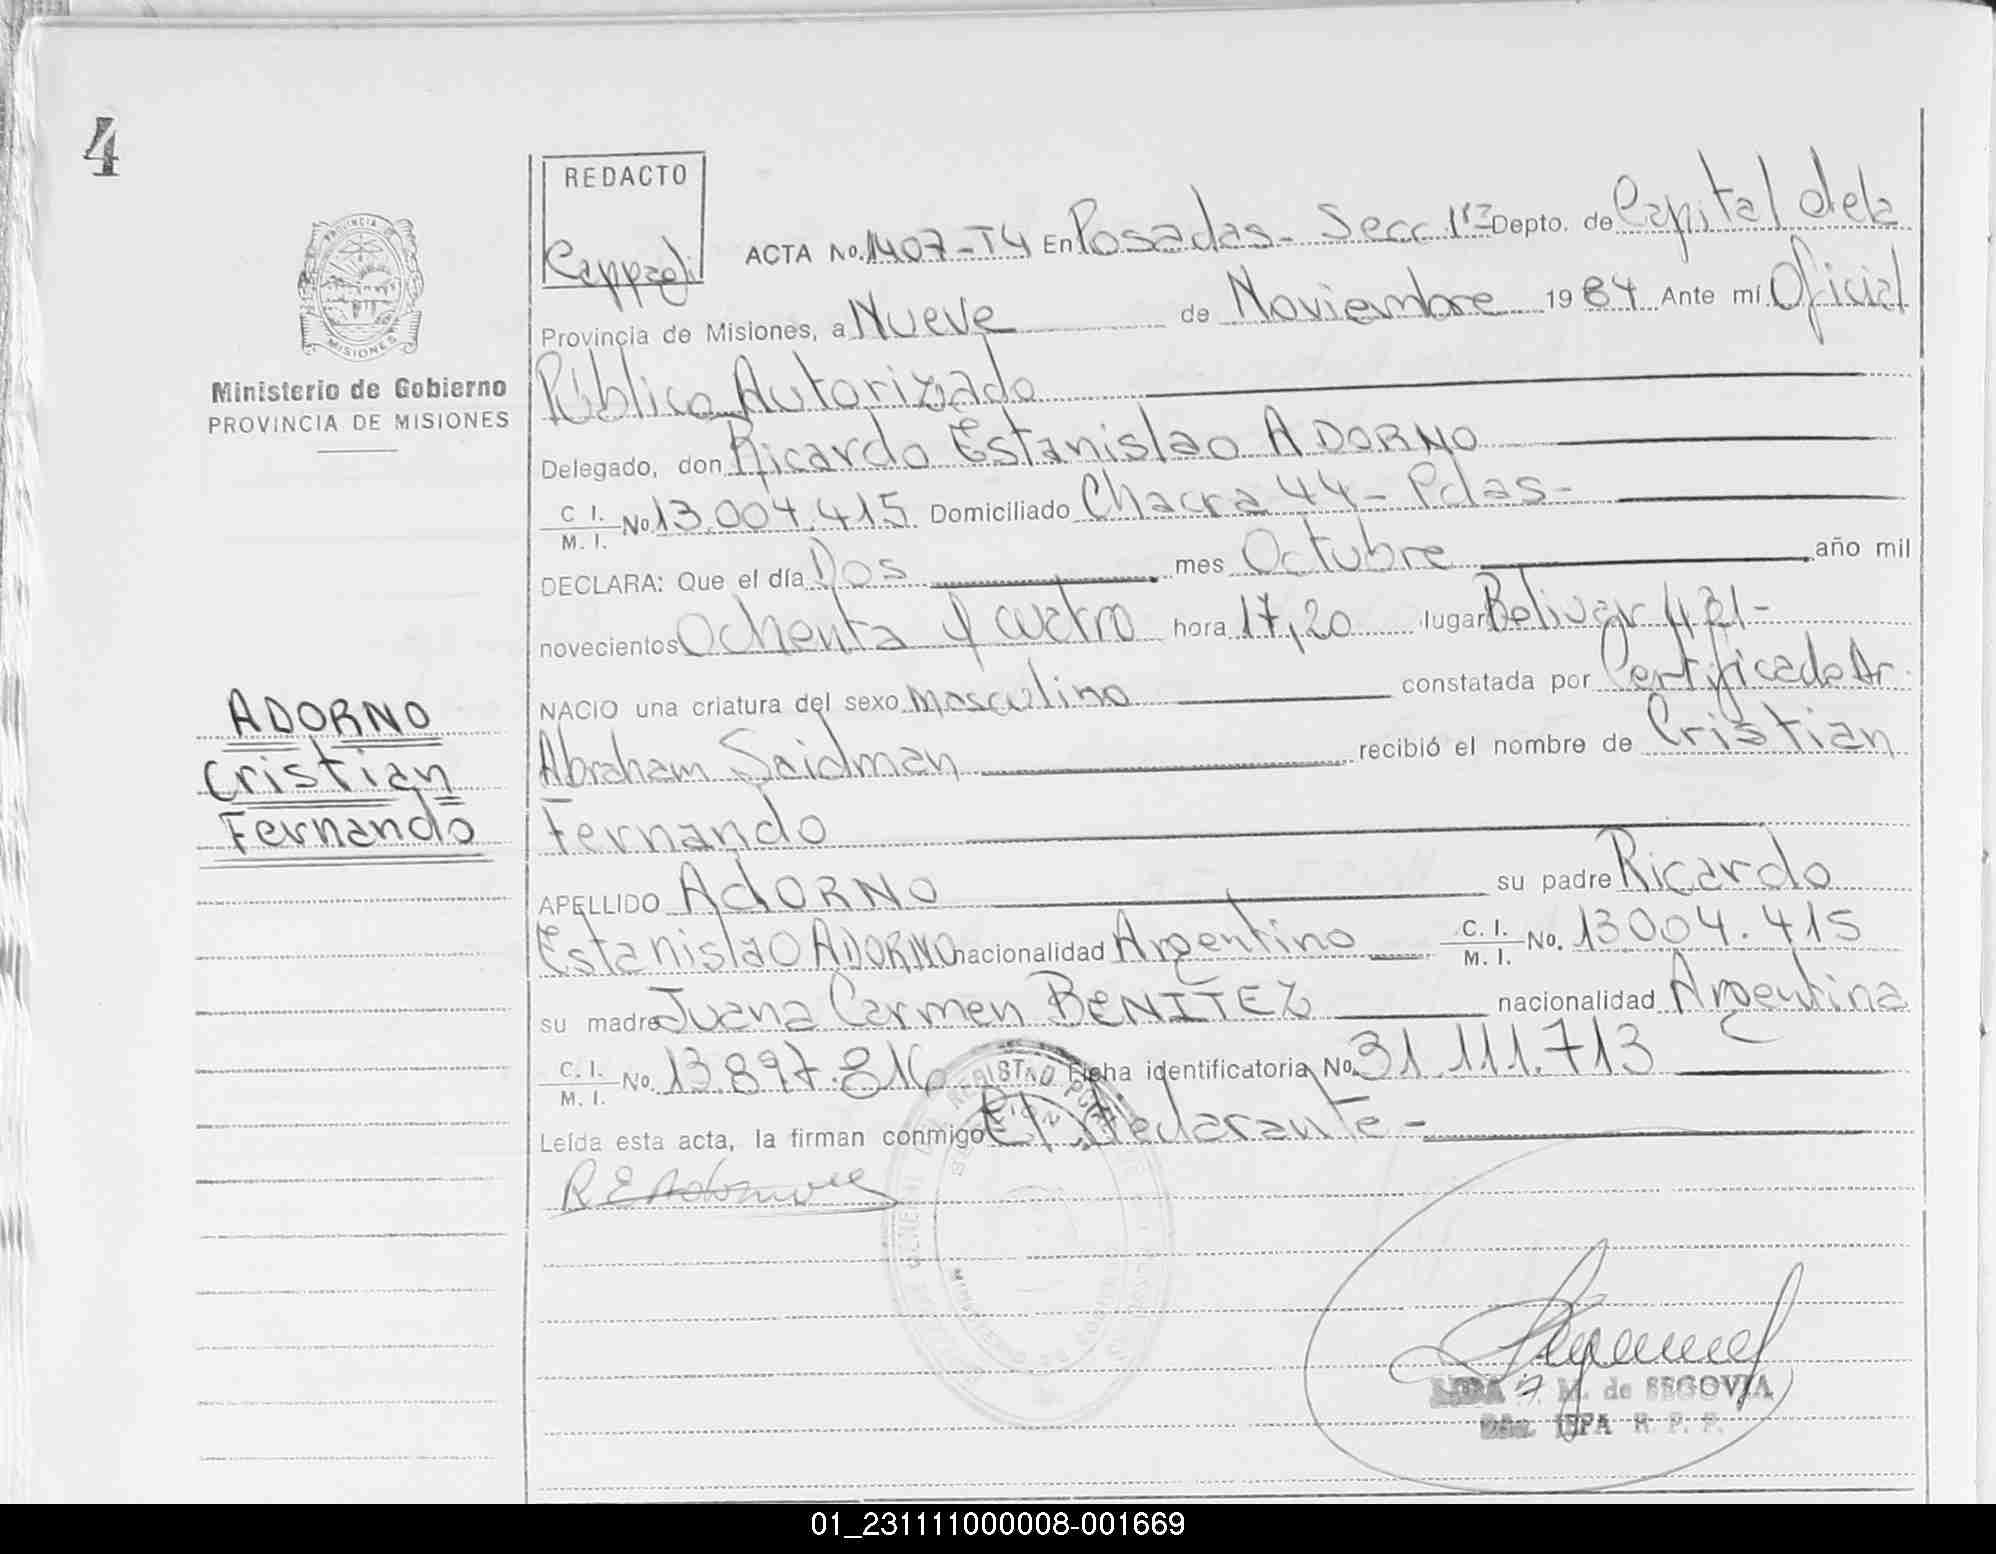 4
REDACTO
PROVINCIA DE
MISIONES
Ministerio de Gobierno
PROVINCIA DE MISIONES
ACTA No. 1407-T4 En Posadas- Secc 1ra Depto. de Capital dela
Provincia de Misiones, a Nueve de Noviembre 1984 Ante mí Oficial
Público Autorizado
Delegado, don Ricardo Estanislao ADORNO
C. I. / M. I. No 13.004.415 Domiciliado Chacra 44- Pdas-
DECLARA: Que el día Dos mes Octubre año mil
novecientos Ochenta y cuatro hora 17,20 lugar Bolivar 421-
NACIO una criatura del sexo masculino constatada por Certificado Dr
Abraham Saidman recibió el nombre de Cristian
Fernando
APELLIDO AdORNO su padre Ricardo
Estanislao ADORNO nacionalidad Argentino C. I. / M. I. No. 13004.415
su madre Juana Carmen BENITEZ nacionalidad Argentina
C. I. / M. I. No. 13.897.816 Ficha identificatoria No. 31.111.713
Leída esta acta, la firman conmigo El Declarante-
ADORNO
Cristian
Fernando
M. de SEGOVIA
R. P. P.
01_231111000008-001669